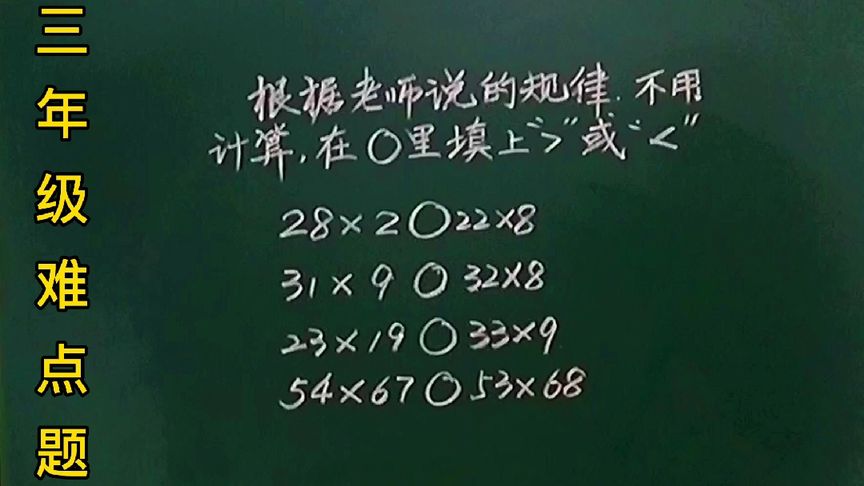 三年级难点题
根据老师说的规律.不用
计算,在○里填上“>”或“<”
28×2○22×8
31×9○32×8
23×19○33×9
54×67○53×68